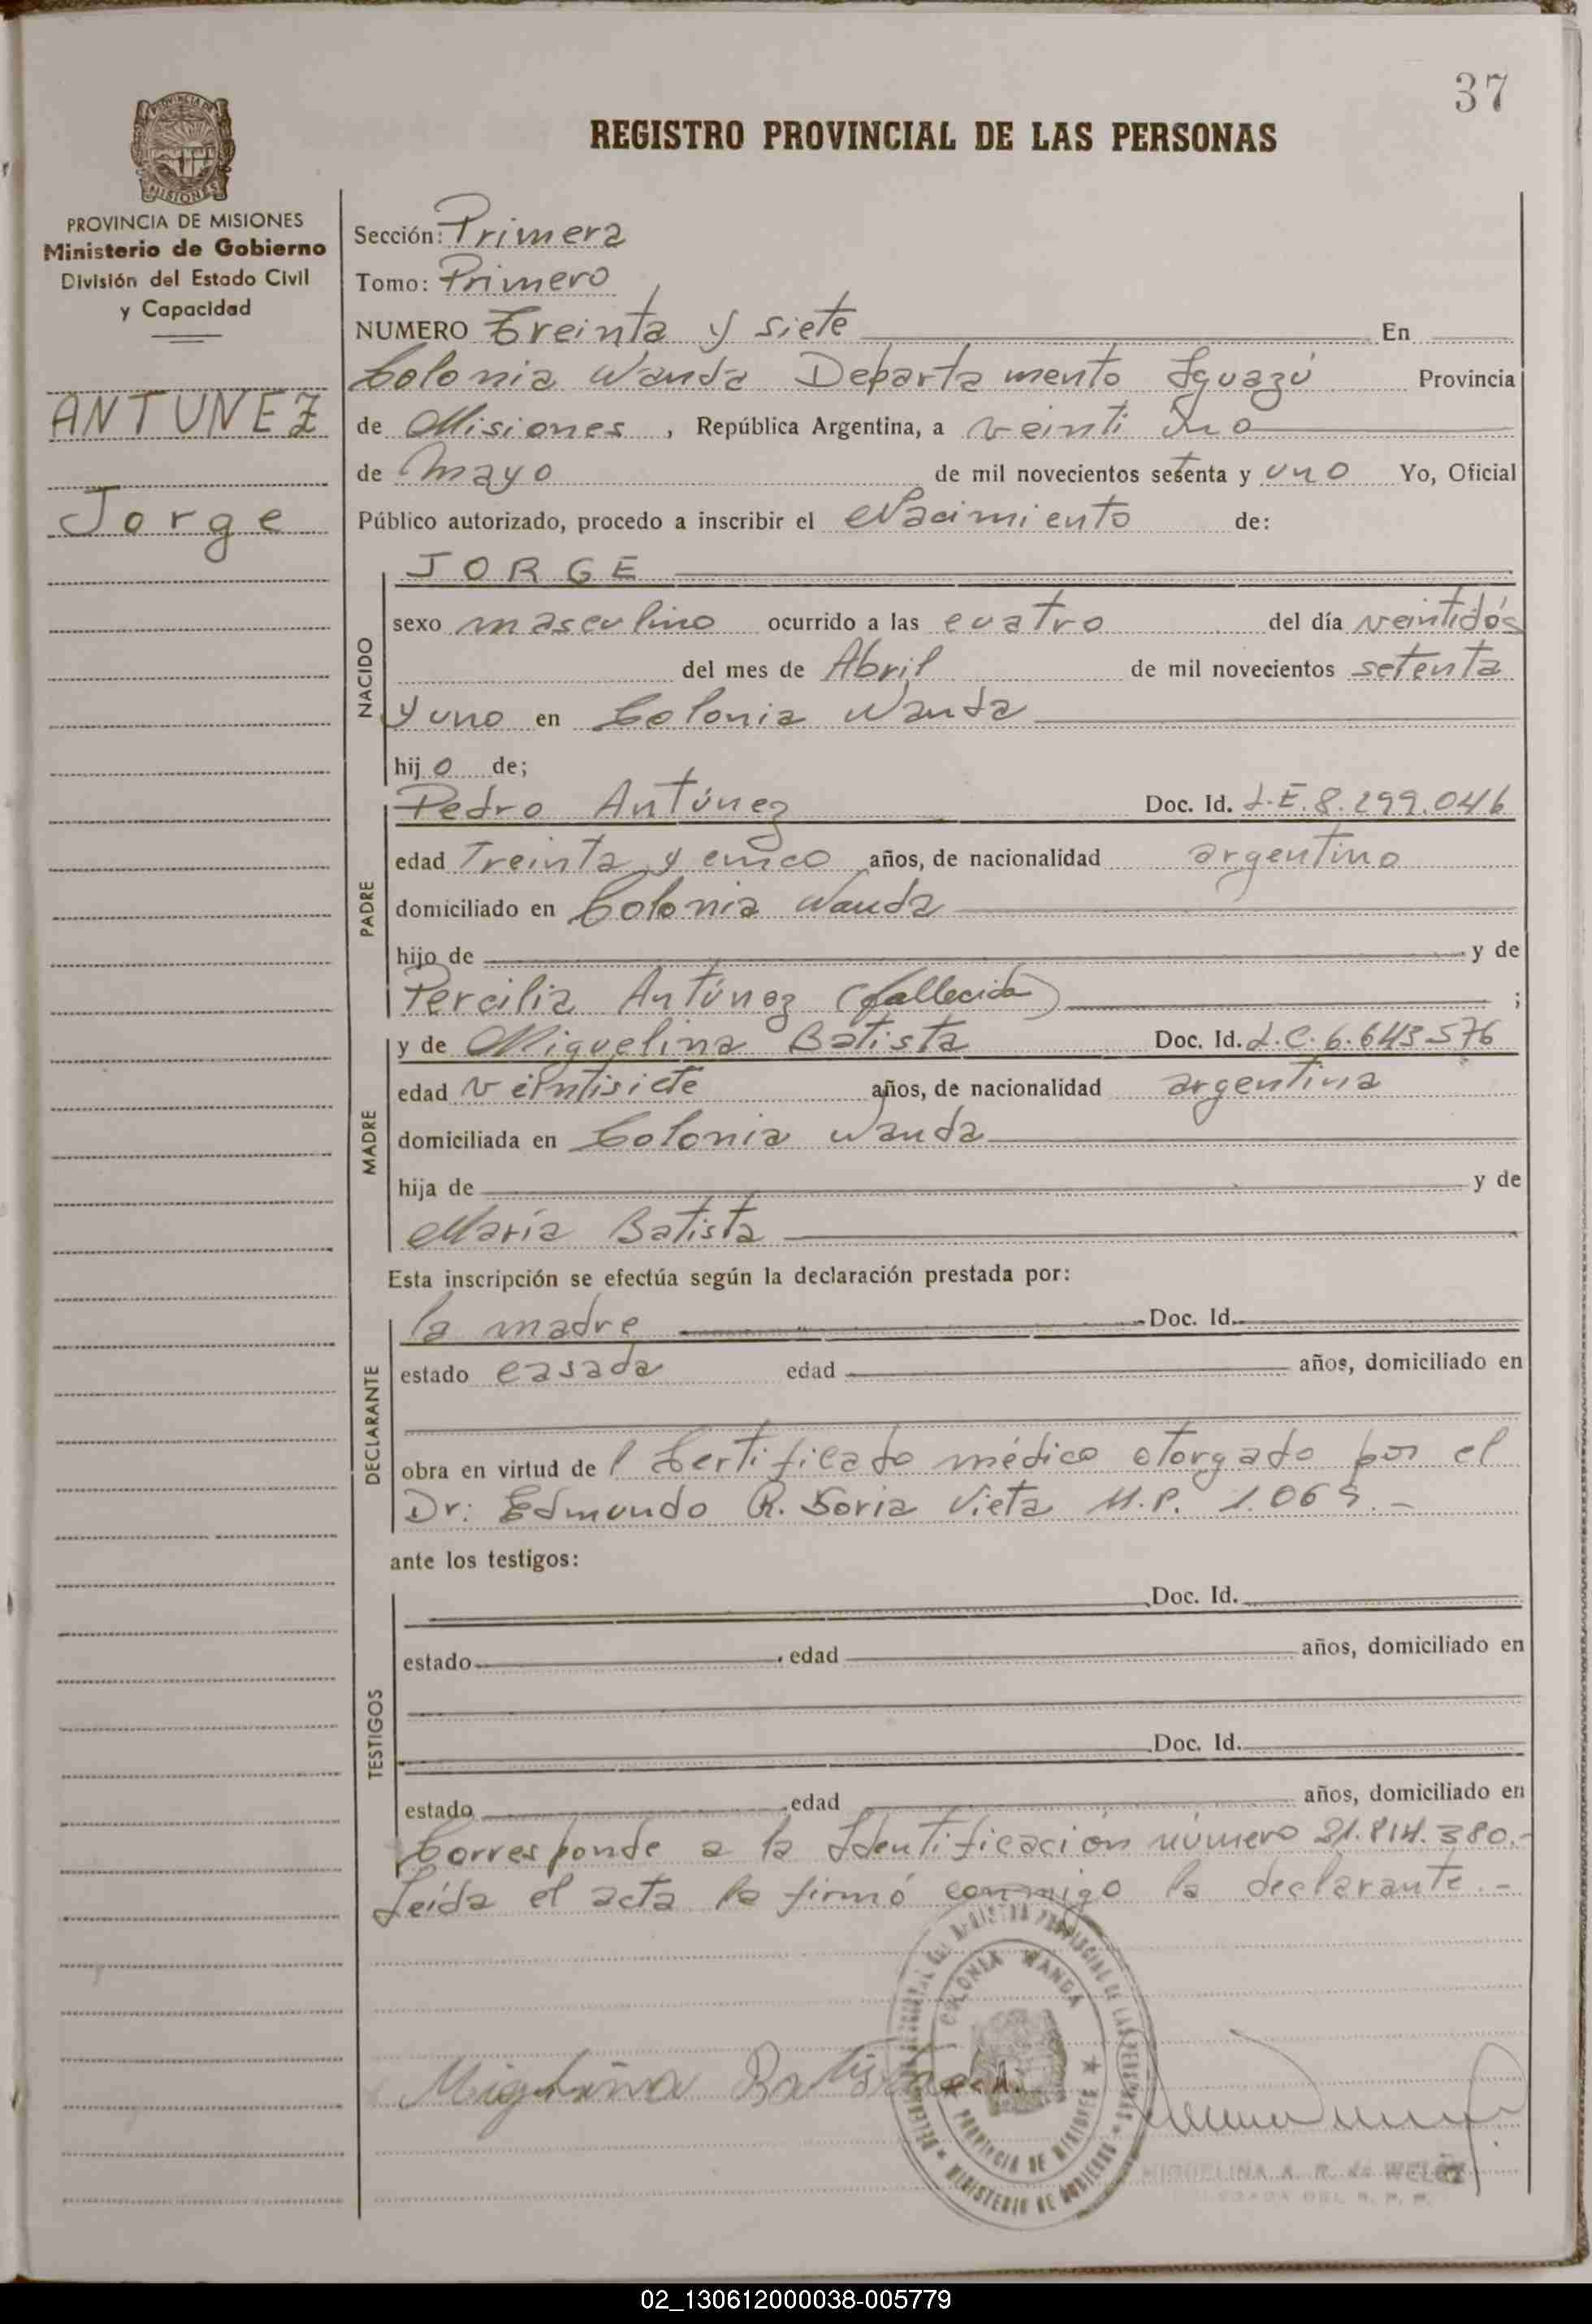 37
REGISTRO PROVINCIAL DE LAS PERSONAS
PROVINCIA DE MISIONES
Ministerio de Gobierno
División del Estado Civil
y Capacidad
ANTUNEZ
Jorge
Sección: Primera
Tomo: Primero
NUMERO Treinta y siete En
Colonia Wanda Departamento Iguazú Provincia
de Misiones, República Argentina, a veintiuno
de Mayo de mil novecientos setenta y uno Yo, Oficial
Público autorizado, procedo a inscribir el Nacimiento de:
NACIDO
JORGE
sexo masculino ocurrido a las cuatro del día veintidós
del mes de Abril de mil novecientos setenta
y uno en Colonia Wanda
hijo de;
PADRE
Pedro Antúnez Doc. Id. L.E. 8.299.046
edad Treinta y cinco años, de nacionalidad argentino
domiciliado en Colonia Wanda
hijo de y de
Percilia Antúnez (fallecida) ;
MADRE
y de Miguelina Batista Doc. Id. L.C. 6.643.576
edad veintisiete años, de nacionalidad argentina
domiciliada en Colonia Wanda
hija de y de
María Batista
Esta inscripción se efectúa según la declaración prestada por:
DECLARANTE
la madre Doc. Id.
estado casada edad años, domiciliado en
obra en virtud del Certificado médico otorgado por el
Dr: Edmundo R. Soria Vieta M.P. 1.069.-
ante los testigos:
TESTIGOS
Doc. Id.
estado edad años, domiciliado en
Doc. Id.
estado edad años, domiciliado en
Corresponde a la Identificación número 21.814.380.-
Leída el acta la firmó conmigo la declarante.-
COLONIA WANDA
PROVINCIA DE MISIONES
MINISTERIO DE GOBIERNO
MIGUELINA A. R. de
02_130612000038-005779